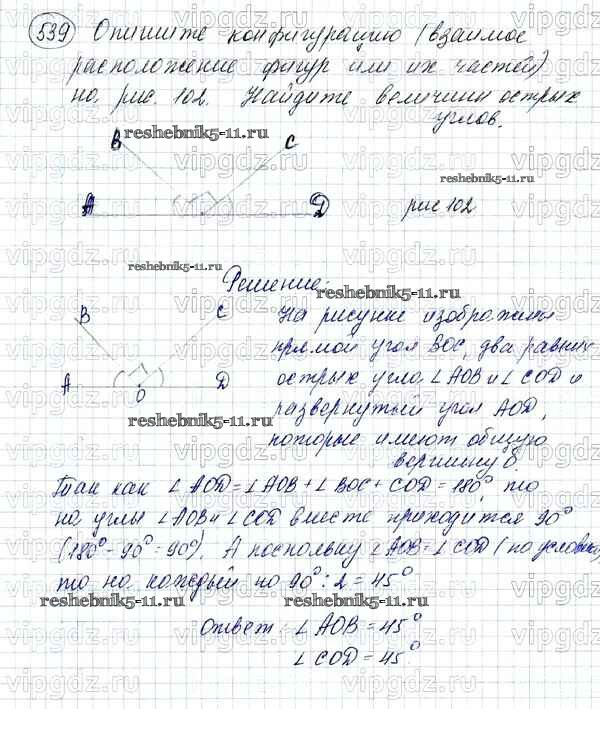 539 Опишите конфигурацию (взаимное
расположение фигур или их частей)
на рис. 102. Найдите величины острых
углов.
reshebnik5-11.ru
B C
reshebnik5-11.ru
A D рис 102
reshebnik5-11.ru
Решение:
reshebnik5-11.ru
B C
A O D
reshebnik5-11.ru
На рисунке изображены
прямой угол BOC, два равных
острых угла ∠AOB и ∠COD и
развернутый угол AOD,
которые имеют общую
вершину O.
Так как ∠AOD = ∠AOB + ∠BOC + COD = 180°, то
на углы ∠AOB и ∠COD вместе приходится 90°
(180° - 90° = 90°). А поскольку ∠AOB = ∠COD (по условию),
то на каждый по 90° : 2 = 45°
reshebnik5-11.ru reshebnik5-11.ru
Ответ: ∠AOB = 45°
∠COD = 45°
vipgdz.ru